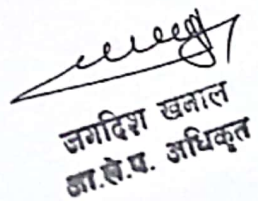 जगदिश खनाल
आ.ले.प. अधिकृत